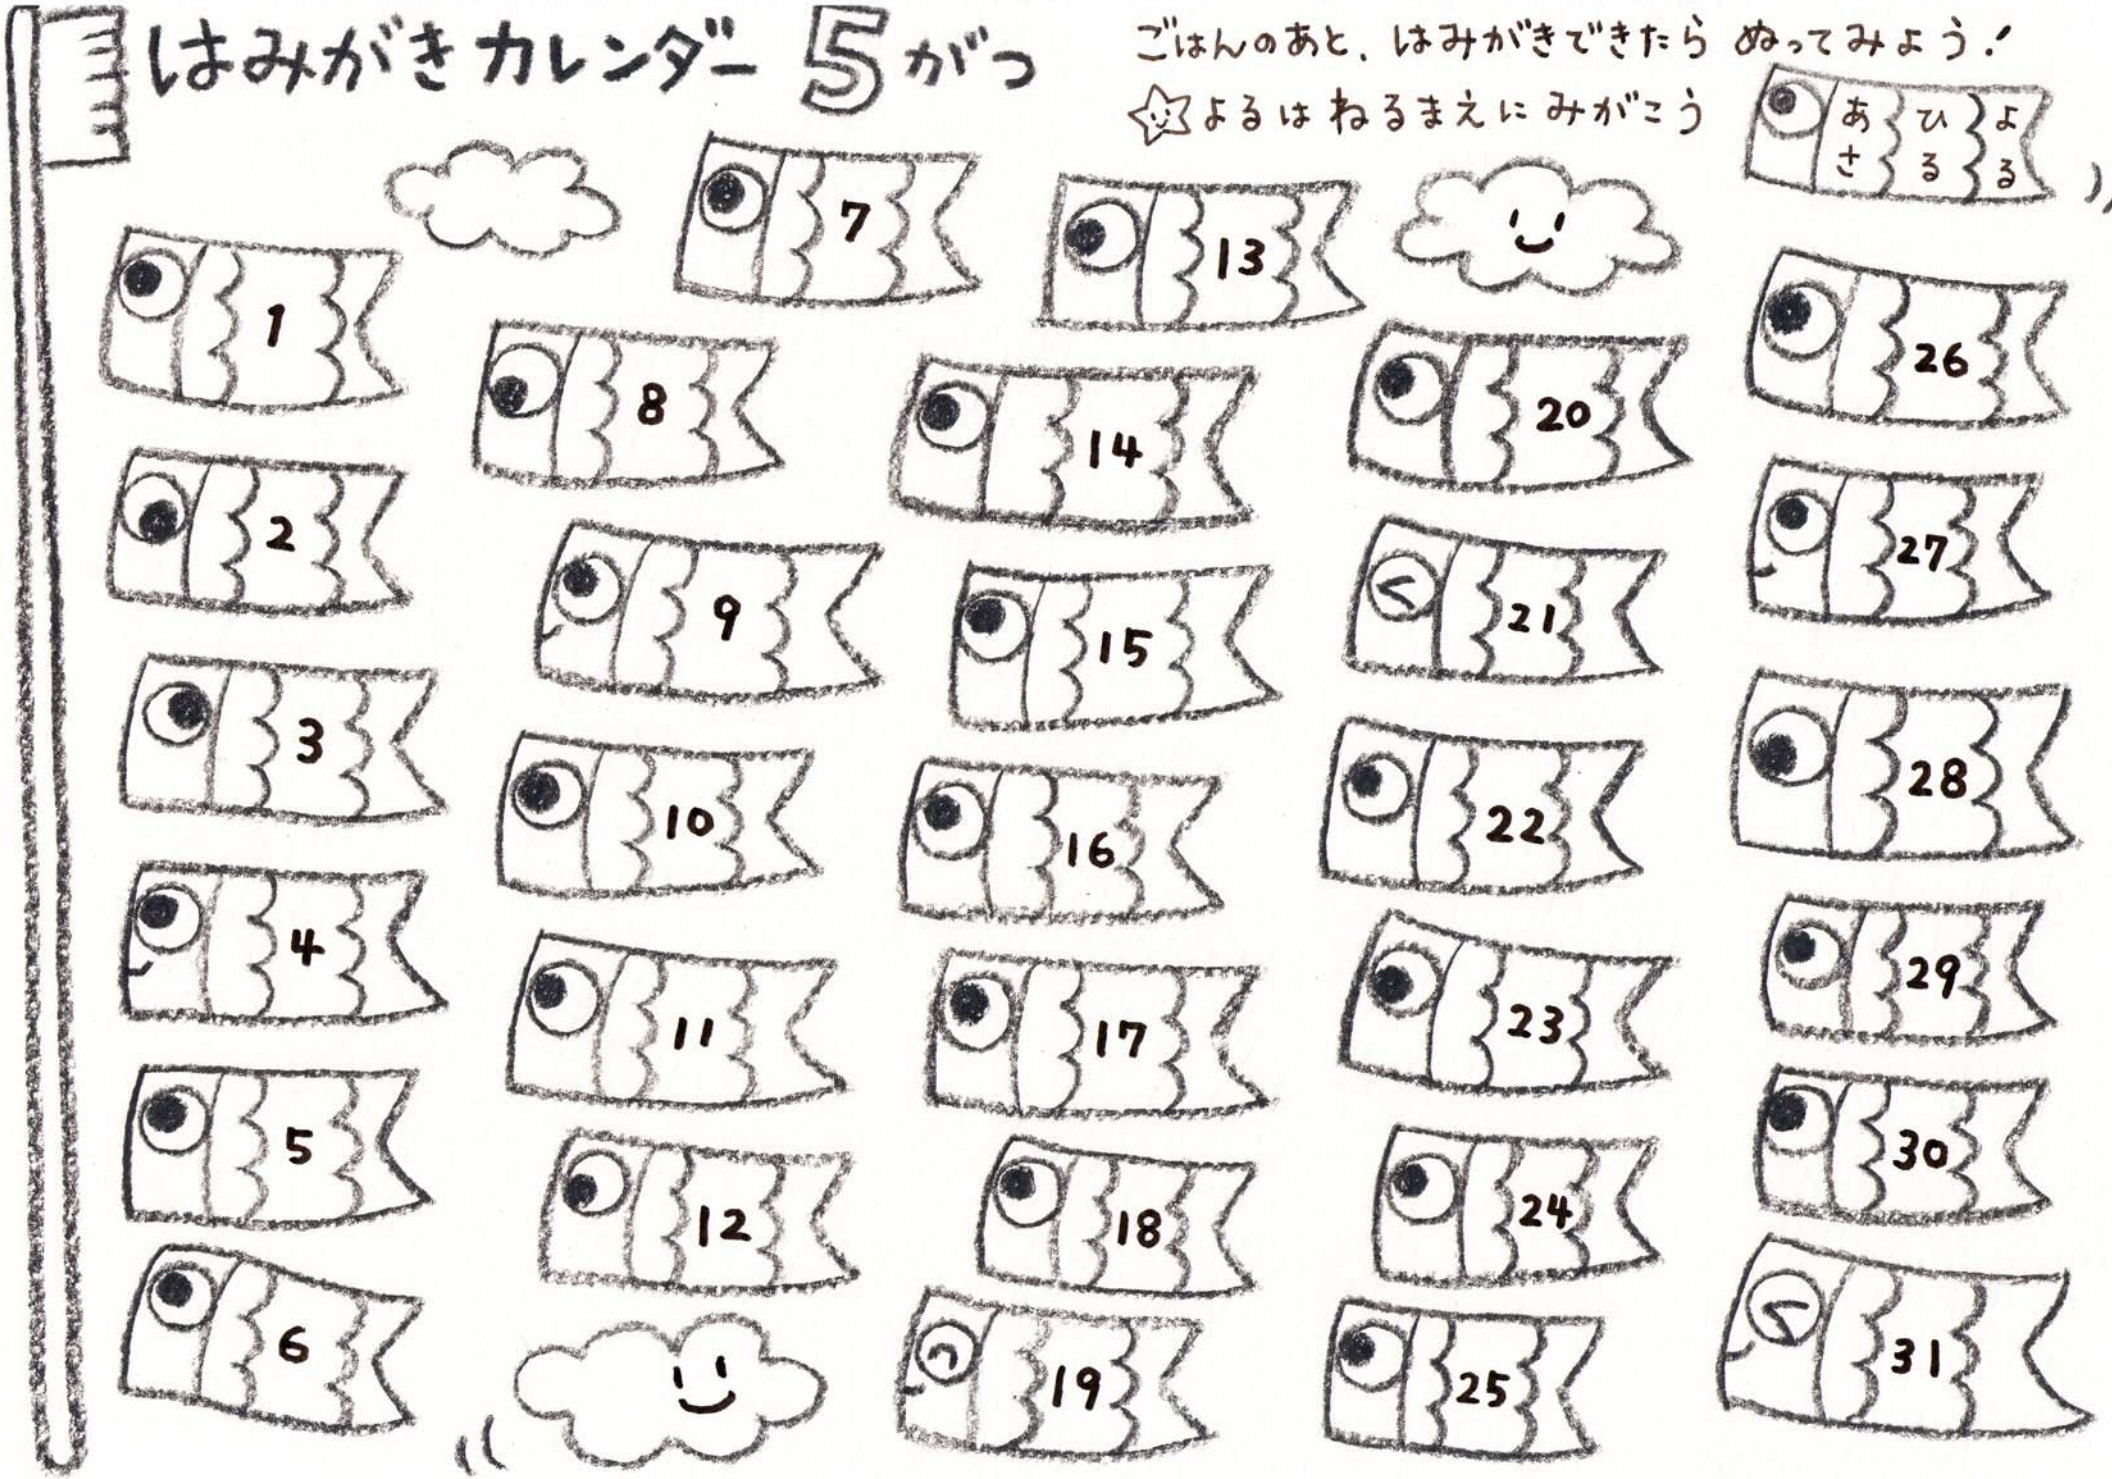 はみがきカレンダー 5がつ
ごはんのあと、はみがきできたら ぬってみよう!
よるは ねるまえに みがこう
あさ ひる よる
1
2
3
4
5
6
7
8
9
10
11
12
13
14
15
16
17
18
19
20
21
22
23
24
25
26
27
28
29
30
31